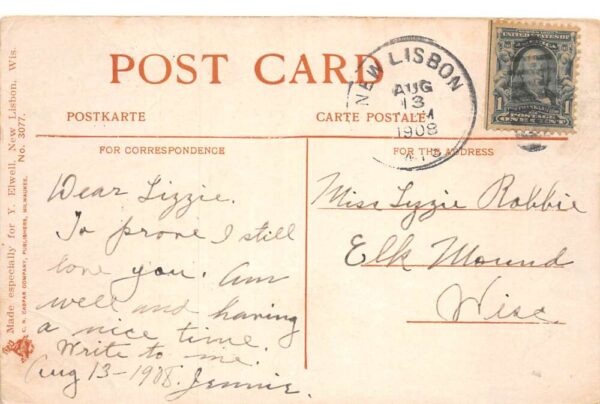 POST CARD
POSTKARTE
CARTE POSTALE
FOR CORRESPONDENCE
FOR THE ADDRESS
NEW LISBON
AUG
13
M
1908
WIS
UNITED STATES OF
AMERICA
1
1
POSTAGE
ONE CENT
Made especially for Y. Elwell, New Lisbon, Wis.
No. 3077.
C. N. CASPAR COMPANY, PUBLISHERS, MILWAUKEE.
Dear Lizzie.
To prove I still
love you. Am
well and having
a nice time.
Write to me.
Aug 13-1908. Jennie.
Miss Lizzie Robbie
Elk Mound
Wisc.